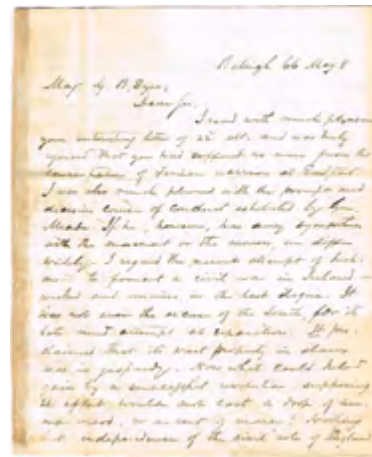 Raleigh 66 May 8
Maj G. B. Dyer,
Dear Sir,
I read with much pleasure
your interesting letter of 22 ult. and was truly
that you had suffered no
of Fenian at Eastport
I was also much pleased with the prompt and
decisive course of conduct exhibited by Gen
Meade. If he, however, has any sympathies
with the movement or the we differ
widely. I regard the present attempt of
to foment a civil war in Ireland
wicked and in the last degree. It
was not even the excuse of the South, for its
attempt at separation. It
that its vast property in slaves
was in jeopardy. Now what could Ireland
gain by a successful revolution supposing
the effort would not cost a drop of
blood, or a cent of money? Nothing
but independence of the rule of England